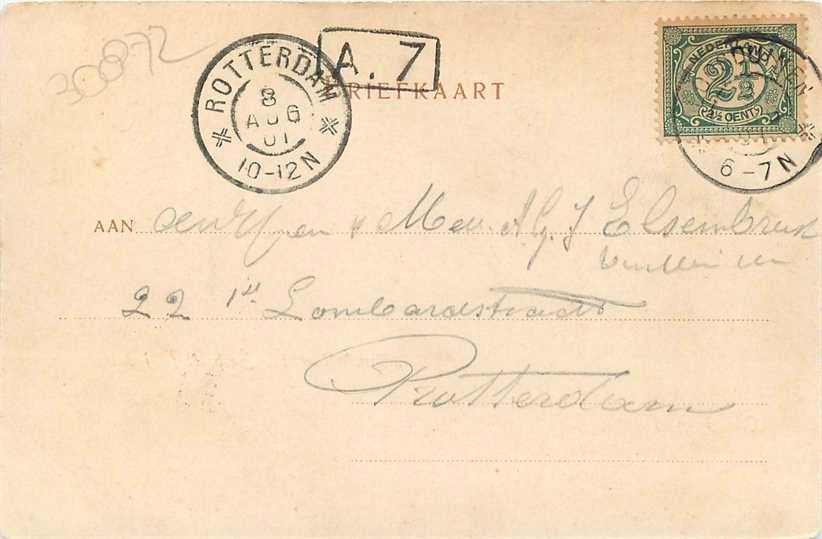 30872
ROTTERDAM
8
AUG
01
10-12N
A. 7
BRIEFKAART
NEDERLAND
2½
(2½ CENT)
6-7N
AAN den Heer & Mev. A. G. J. Elsenbroek
22 1e Lombardstraat
Rotterdam